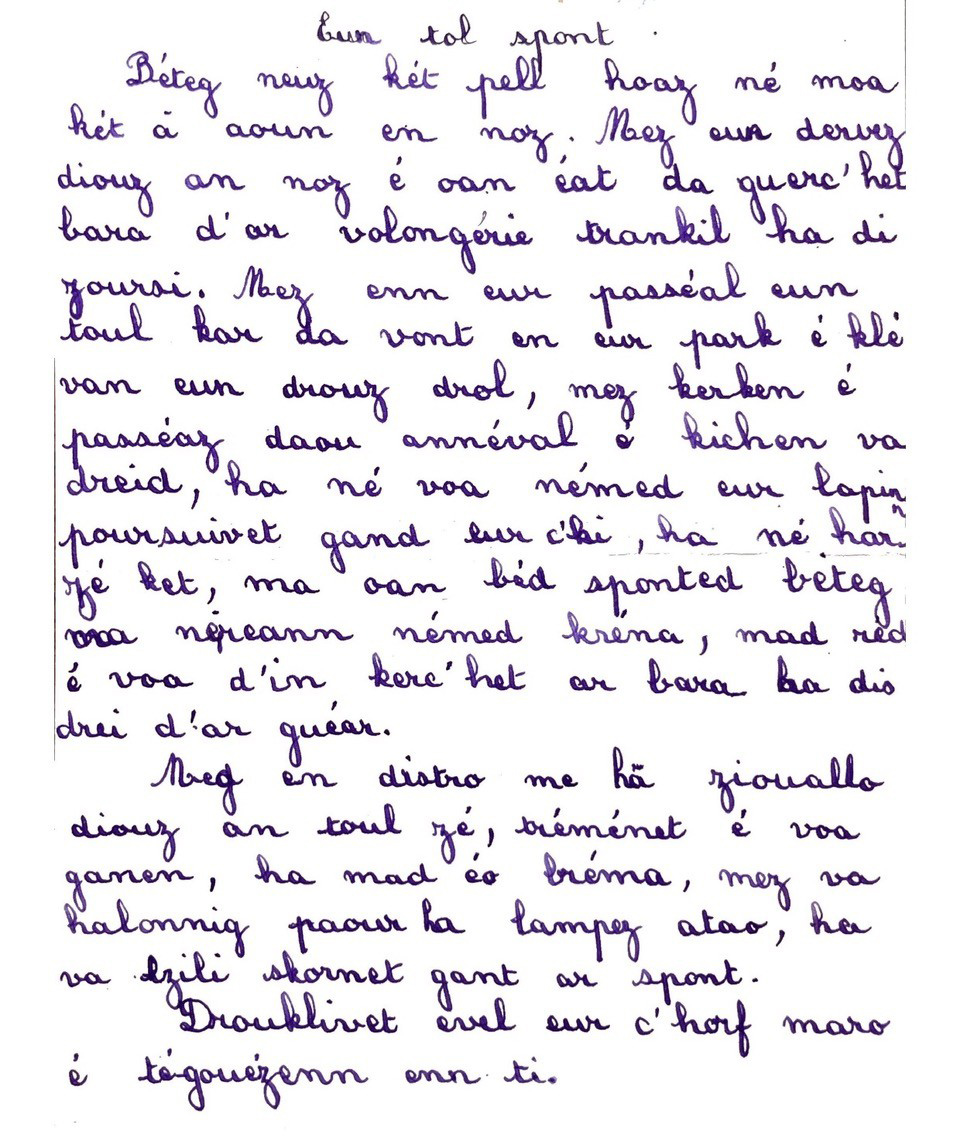 Eun tol spont.
Béteg neuz két pell hoaz né moa
két ā aoun en noz. Mez eun dervez
diouz an noz é oan éat da guerc'het
bara d'ar volongérie trankil ha di
zoursi. Mez enn eur passéal eun
toul kar da vont en eur park é klé
van eun drouz drol, mez kerken é
passéaz daou annéval é kichen va
dreid, ha né voa némed eur lapin
poursuivet gand eur c'hi, ha né harz
zé ket, ma oan béd sponted béteg
néreann némed kréna, mad rèd
é voa d'in kerc'het ar bara ha dis
drei d'ar guéar.
Meg en distro me hā ziouallo
diouz an toul zé, tréménet é voa
ganen, ha mad éo bréma, mez va
halonnig paour ha lampez atao, ha
va izili skornet gant ar spont.
Drouklivet evel eur c'horf maro
é tégouézenn enn ti.